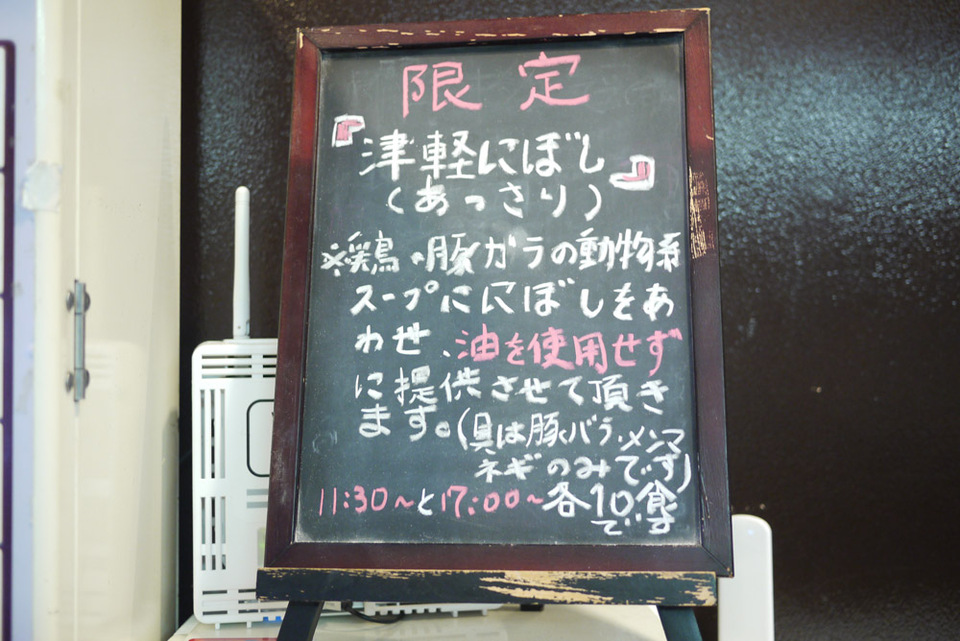 限定
『津軽にぼし』
(あっさり)
※鶏・豚ガラの動物系
スープににぼしをあ
わせ、油を使用せず
に提供させて頂き
ます。(具は豚バラ、メンマ
ネギのみです)
11:30～と17:00～各10食
です